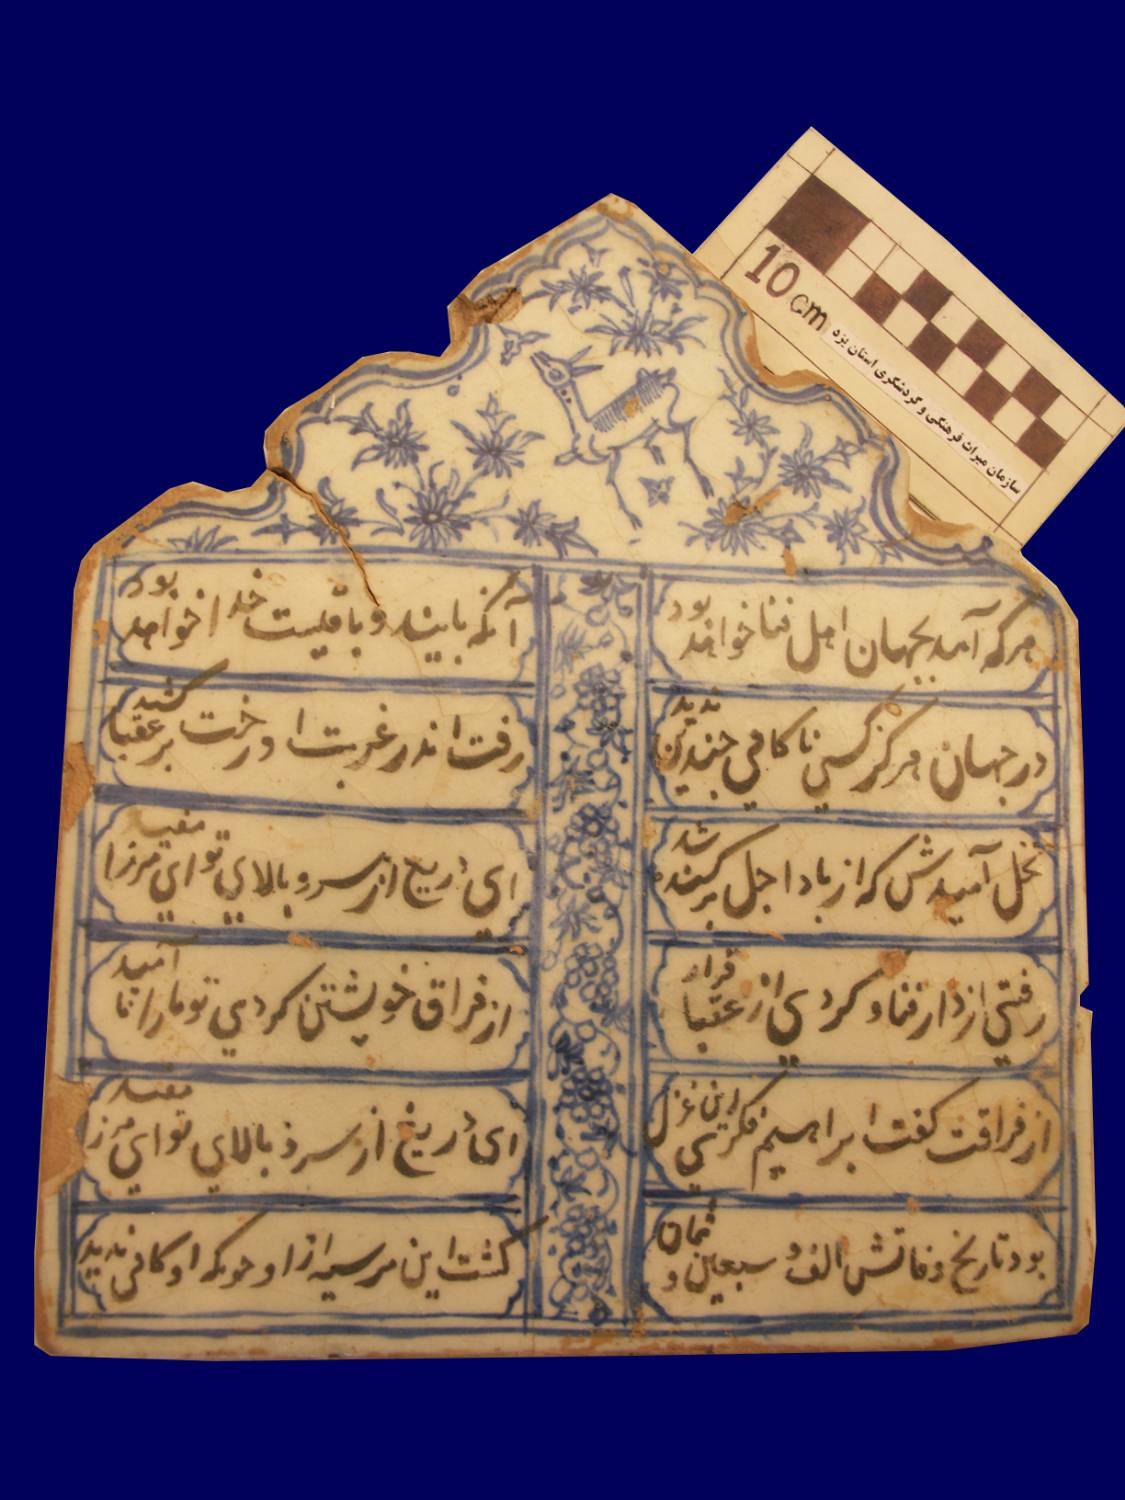 10 cm
سازمان میراث فرهنگی و گردشگری استان یزد
هرکه آمد بجهان اهل فنا خواهد بود
آنکه پاینده و باقیست خدا خواهد بود
در جهان هرگز کسی ناکامی چندین ندید
رفت اندر غربت او رخت بر عقبا کشید
نخل آمیدش که از باد اجل برکنده شد
ای دریغ از سرو بالای تو ای میرزا مفید
رفتی از دار فنا و کردی از عقبا قرار
از فراق خویشتن کردی تو ما را نا آمید
از فراقت گفت ابراهیم فکری این غزل
ای دریغ از سرو بالای تو ای میرزا مفید
بود تاریخ وفاتش الف و سبعین و ثمان
گشت این مرسیه از او کافی ندید